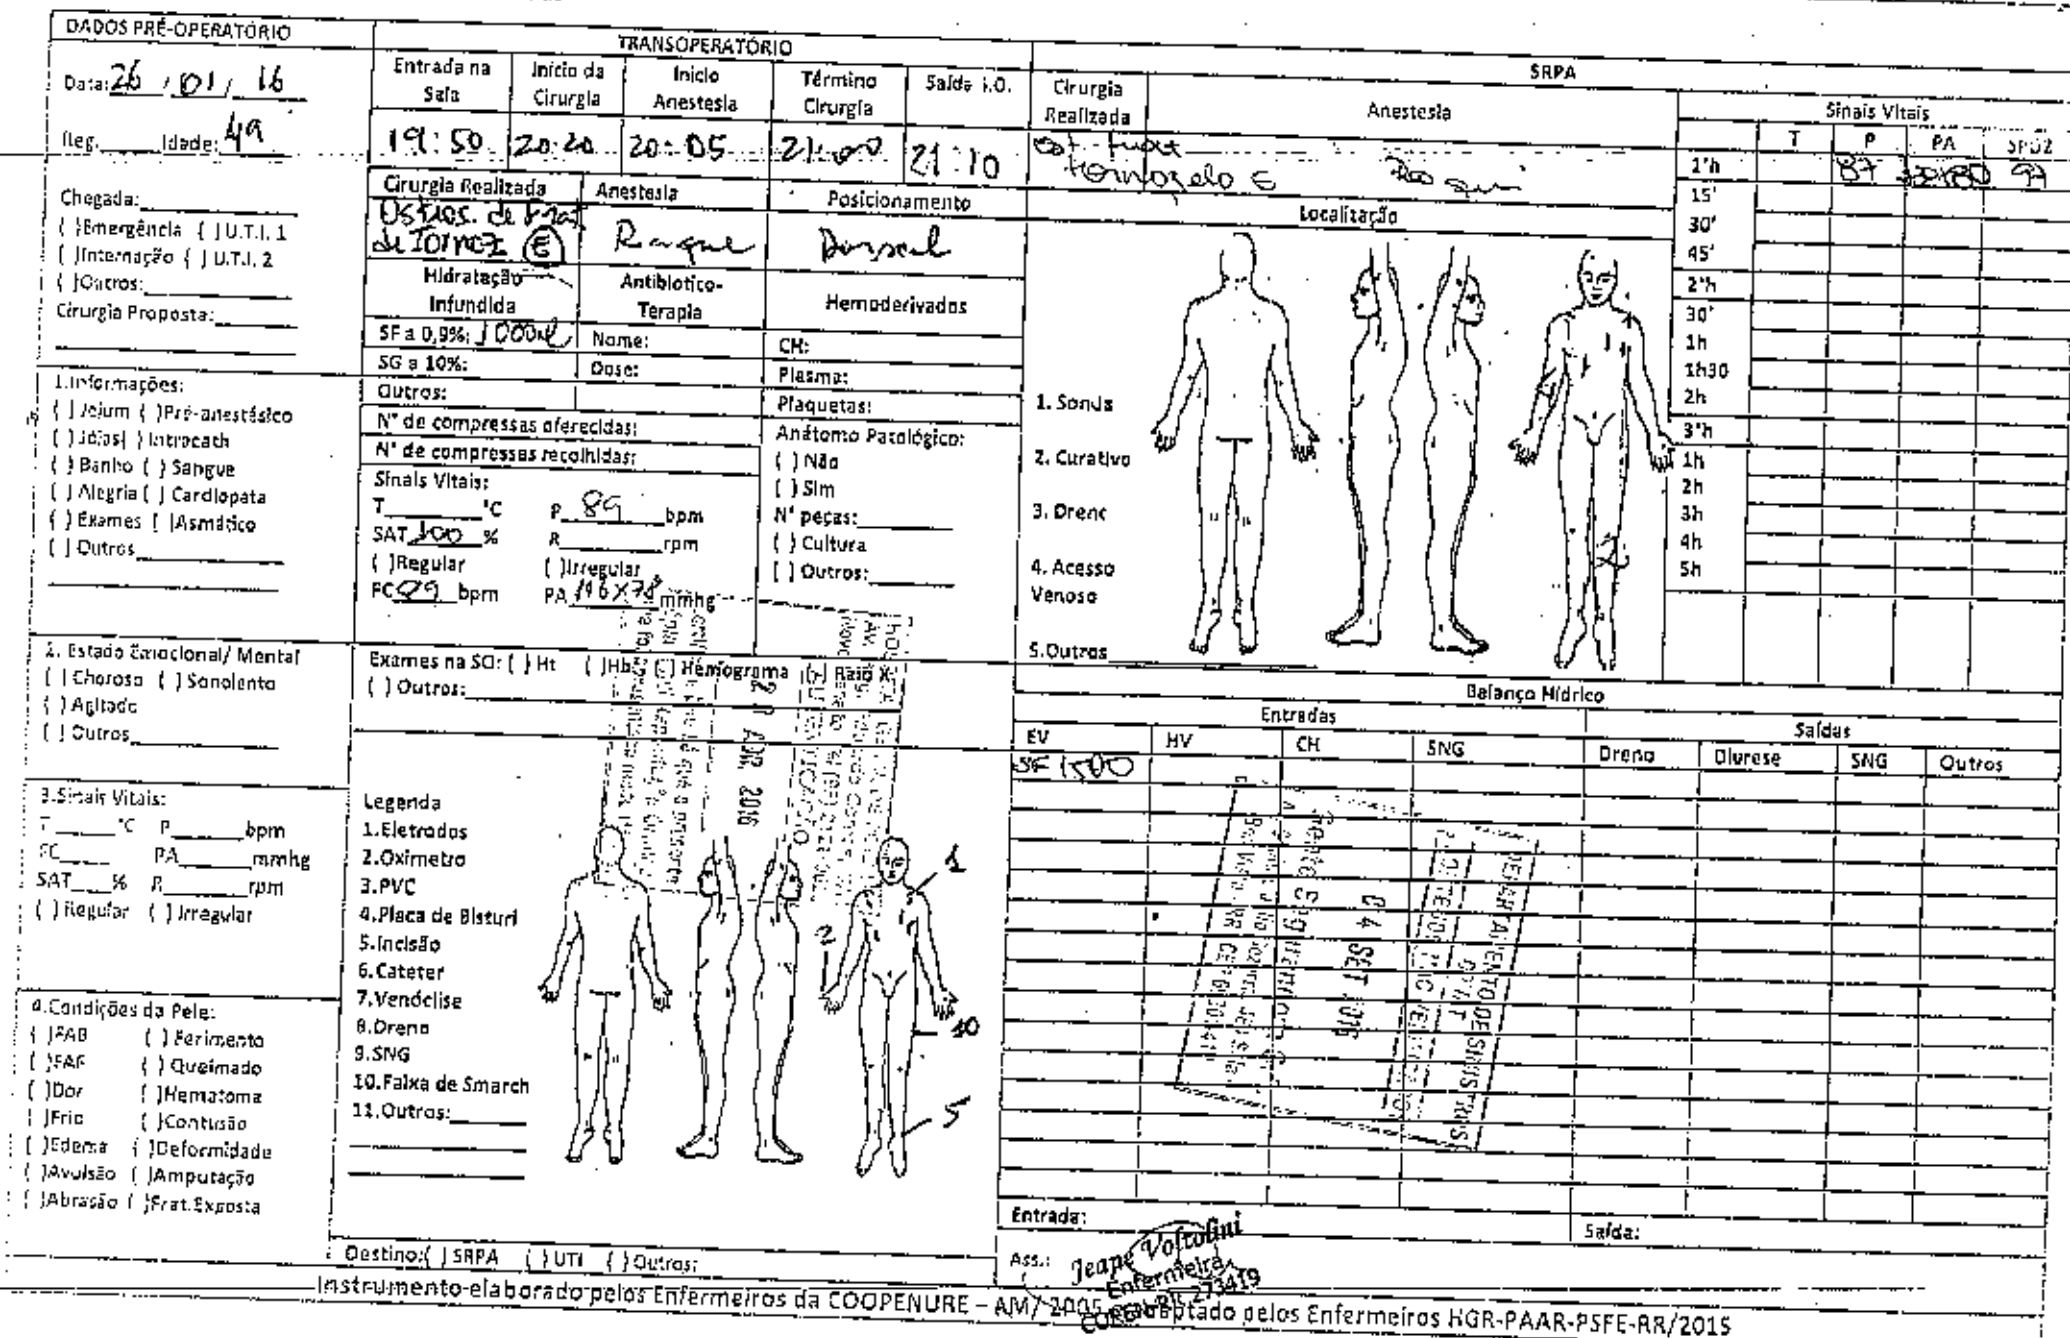 DADOS PRÉ-OPERATÓRIO
Data: 26 / 01 / 16
Reg. Idade: 49
Chegada:
( )Emergência ( )U.T.I. 1
( )Internação ( )U.T.I. 2
( )Outros:
Cirurgia Proposta:
1.Informações:
( ) Jejum ( )Pré-anestésico
( ) Jóias( ) Intracath
( ) Banho ( ) Sangue
( ) Alegria ( ) Cardiopata
( ) Exames ( )Asmático
( ) Outros
2. Estado Emocional/ Mental
( ) Choroso ( ) Sonolento
( ) Agitado
( ) Outros
3.Sinais Vitais:
T °C P bpm
FC PA mmhg
SAT % R rpm
( ) Regular ( ) Irregular
4.Condições da Pele:
( )FAB ( ) Ferimento
( )FAF ( ) Queimado
( )Dor ( )Hematoma
( )Frio ( )Contusão
( )Edema ( )Deformidade
( )Avulsão ( )Amputação
( )Abrasão ( )Frat.Exposta
TRANSOPERATÓRIO
Entrada na Sala
Início da Cirurgia
Inicio Anestesia
Término Cirurgia
Saída
19:50 20:20 20:05 21:00 21:10
Cirurgia Realizada Anestesia Posicionamento
de Tornoz (E) Raque Dorsal
Hidratação Infundida
Antibiotico-Terapia
Hemoderivados
SF a 0,9%: 1000ml Nome: CH:
SG a 10%: Dose: Plasma:
Outros: Plaquetas:
N° de compressas oferecidas:
N° de compressas recolhidas:
Anátomo Patológico:
( ) Não
( ) Sim
N° peças:
( ) Cultura
( ) Outros:
Sinais Vitais:
T °C P 89 bpm
SAT 100 % R rpm
( )Regular ( )Irregular
FC 89 bpm PA mmhg
Exames na SO: ( ) Ht ( )Hb ( ) Hemograma ( ) Raio X
( ) Outros:
20 ABR. 2016
Legenda
1.Eletrodos
2.Oximetro
3.PVC
4.Placa de Bisturi
5.Incisão
6.Cateter
7.Venóclise
8.Dreno
9.SNG
10.Faixa de Smarch
11.Outros:
1
2
10
5
Destino:( ) SRPA ( ) UTI ( ) Outros:
SRPA
Cirurgia Realizada
Anestesia
Sinais Vitais
T P PA SPO2
tornozelo E Raqui
1ªh 87 99
15'
30'
45'
2ªh
30'
1h
1h30
2h
3ªh
1h
2h
3h
4h
5h
Localização
1. Sonda
2. Curativo
3. Dreno
4. Acesso Venoso
5.Outros
4
2
Balanço Hídrico
Entradas Saídas
EV HV CH SNG Dreno Diurese SNG Outros
SF 1500
04 SET 2016
Entrada: Saída:
Ass.: Jeane Voltolini
Enfermeira
273419
Instrumento elaborado pelos Enfermeiros da COOPENURE – AM/ 2005 adaptado pelos Enfermeiros HGR-PAAR-PSFE-RR/2015